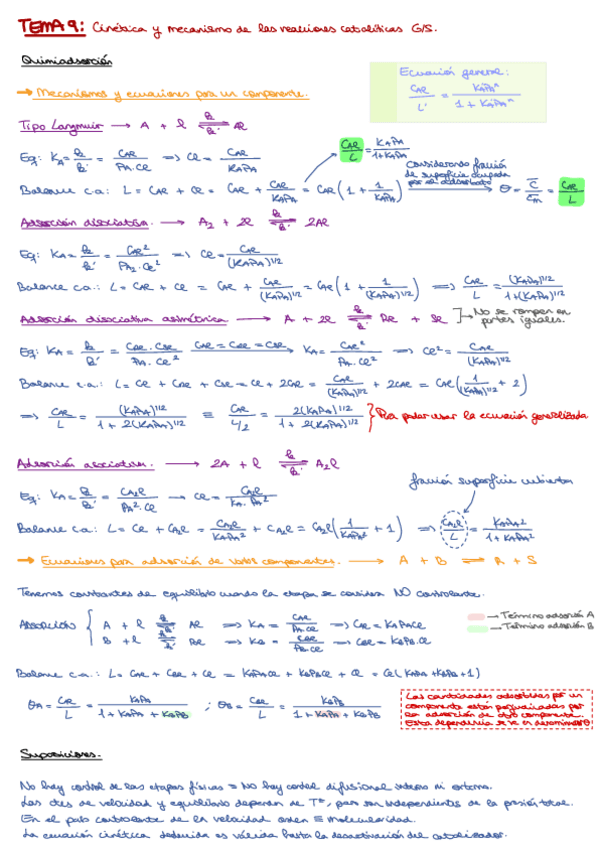 TEMA 9: Cinética y mecanismo de las reacciones catalíticas G/S.
Quimiadsorción
Ecuación general:
CAl/L' = K'APAⁿ/(1 + K'APAⁿ)
→ Mecanismos y ecuaciones para un componente.
Tipo Langmuir → A + l ⇌ Al
CAl/L = KAPA/(1+KAPA)
Eq: KA = k/k' = CAl/(PA·Cl) ⇒ Cl = CAl/(KAPA)
Considerando fracción de superficie ocupada por el adsorbato
Balance c.a: L = CAl + Cl = CAl + CAl/(KAPA) = CAl(1 + 1/(KAPA)) → θ = C/Cm = CAl/L
Adsorción disociativa. → A2 + 2l ⇌ 2Al
Eq: KA = k/k' = CAl²/(PA2·Cl²) ⇒ Cl = CAl/(KAPA)^1/2
Balance c.a.: L = CAl + Cl = CAl + CAl/(KAPA)^1/2 = CAl(1 + 1/(KAPA)^1/2) ⇒ CAl/L = (KAPA)^1/2/(1+(KAPA)^1/2)
Adsorción disociativa asimétrica → A + 2l ⇌ Rl + Sl → No se rompen en partes iguales.
Eq: KA = k/k' = CRl·CSl/(PA·Cl²) CAl = CRl = CSl → KA = CAl²/(PA·Cl²) ⇒ Cl² = CAl/(KAPA)^1/2
Balance c.a.: L = Cl + CRl + CSl = Cl + 2CAl = CAl/(KAPA)^1/2 + 2CAl = CAl(1/(KAPA)^1/2 + 2)
⇒ CAl/L = (KAPA)^1/2/(1 + 2(KAPA)^1/2) ≡ CAl/(L/2) = 2(KAPA)^1/2/(1 + 2(KAPA)^1/2) } Para poder usar la ecuación generalizada
Adsorción asociativa. → 2A + l ⇌ A2l
fracción superficie cubierta
Eq: KA = k/k' = CA2l/(PA²·Cl) → Cl = CA2l/(KA·PA²)
Balance c.a: L = Cl + CA2l = CA2l/(KAPA²) + CA2l = CA2l(1/(KAPA²) + 1) ⇒ CA2l/L = KAPA²/(1 + KAPA²)
→ Ecuaciones para adsorción de varios componentes. → A + B ⇌ R + S
Tenemos constantes de equilibrio cuando la etapa se considera NO controlante.
→ Término adsorción A
→ Término adsorción B
ADSORCIÓN { A + l ⇌ Al ⇒ KA = CAl/(PA·Cl) ⇒ CAl = KAPACl
B + l ⇌ Bl ⇒ KB = CBl/(PB·Cl) ⇒ CBl = KBPB·Cl
Balance c.a.: L = CAl + CBl + Cl = KAPACl + KBPBCl + Cl = Cl(KAPA + KBPB + 1)
θA = CAl/L = KAPA/(1 + KAPA + KBPB) ; θB = CBl/L = KBPB/(1 + KAPA + KBPB)
Las cantidades adsorbidas por un
componente están perjudicadas por
la adsorción de otro componente.
Esta dependencia se ve en denominador
Suposiciones.
No hay control de las etapas físicas = No hay control difusional interno ni externo.
Las ctes de velocidad y equilibrio dependen de Tª, pero son independientes de la presión total.
En el paso controlante de la velocidad orden ≡ molecularidad.
La ecuación cinética deducida es válida hasta la desactivación del catalizador.